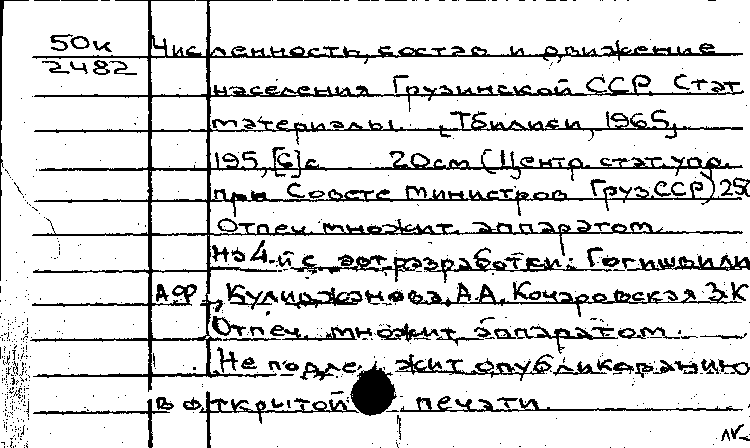 50к Численность, состав и движение
2482
населения Грузинской ССР. Стат
материалы. [Тбилиси, 1965],
195, [6] с. 20 см (Центр. стат. упр.
при Совете Министров Груз.ССР) 250
Отпеч. множит. аппаратом.
На 4-й с. авт. разработки: Гогишвили
А.Ф., Кулиджанова А.А., Кочаровская З.К
Отпеч. множит. аппаратом.
Не подлежит опубликованию
в открытой печати.